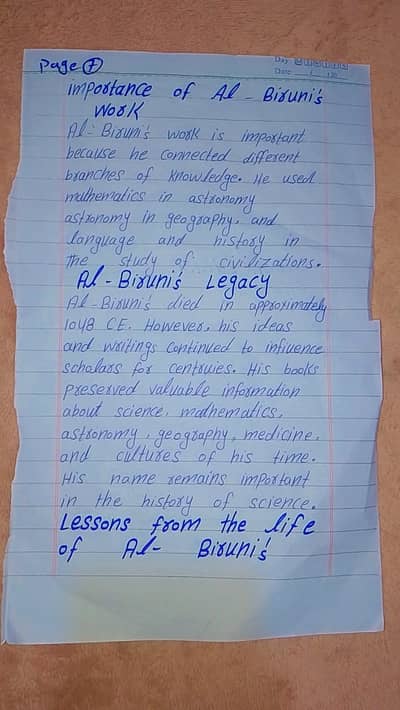 Page 7
Day
Date
importance of Al - Biruni's
Work
Al- Biruni's work is important
because he connected different
branches of knowledge. He used
mathematics in astronomy
astronomy in geography, and
language and history in
the study of civilizations.
Al - Biruni's Legacy
Al- Biruni's died in approximately
1048 C.E. However, his ideas
and writings continued to infiuence
scholars for centruies. His books
preserved valuable information
about science, mathematics,
astronomy, geography, medicine,
and cultures of his time.
His name remains important
in the history of science.
Lessons from the life
of Al- Biruni's